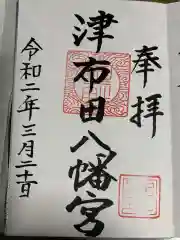 奉拝
津布田八幡宮
令和二年三月二十日